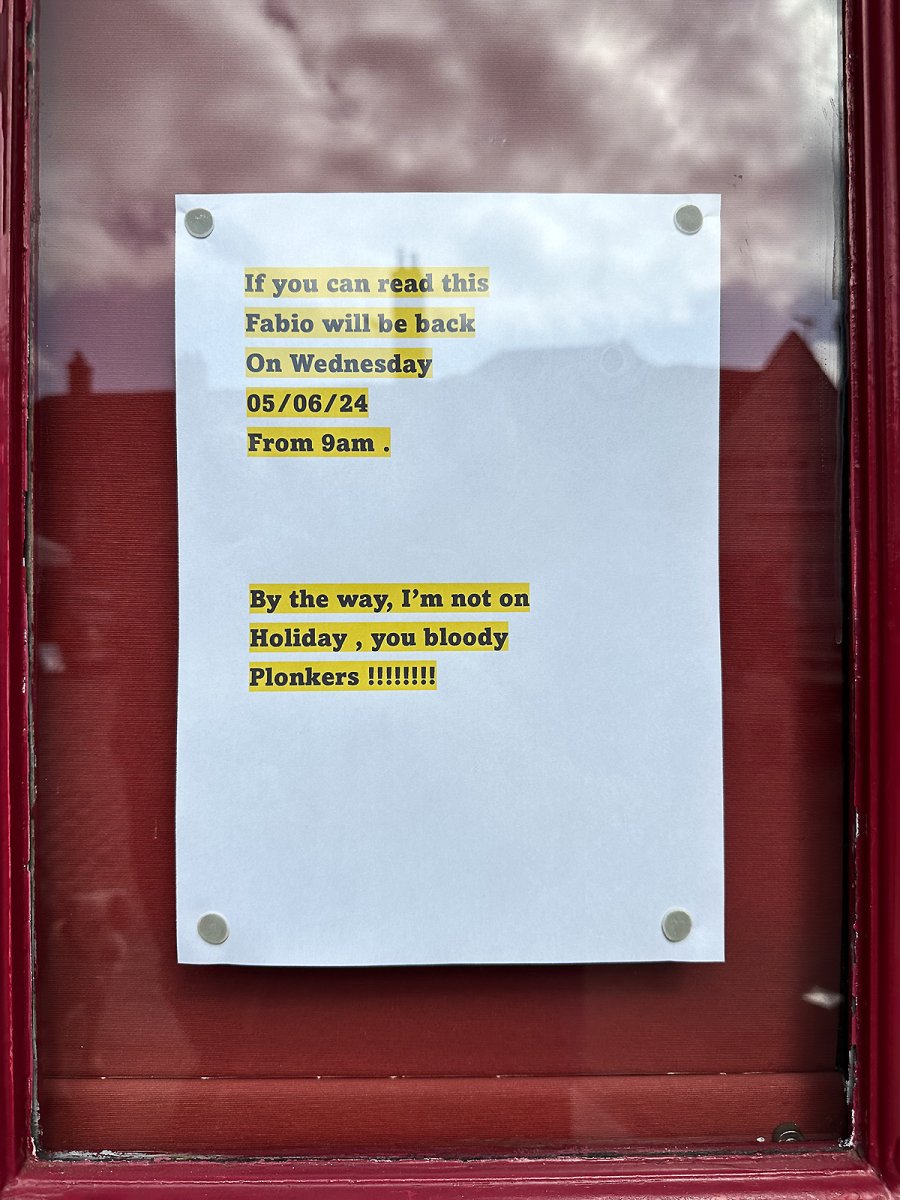 If you can read this
Fabio will be back
On Wednesday
05/06/24
From 9am .
By the way, I’m not on
Holiday , you bloody
Plonkers !!!!!!!!